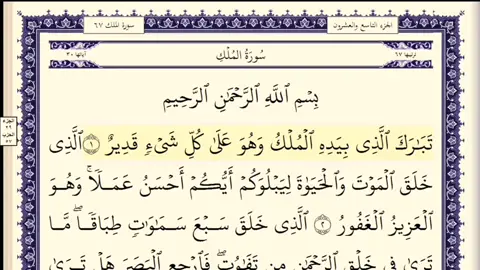 سورة الملك ٦٧
الجزء التاسع والعشرون
ترتيبها ٦٧
سُورَةُ المُلْكِ
آياتها ٣٠
بِسْمِ ٱللَّهِ ٱلرَّحْمَٰنِ ٱلرَّحِيمِ
تَبَٰرَكَ ٱلَّذِى بِيَدِهِ ٱلْمُلْكُ وَهُوَ عَلَىٰ كُلِّ شَىْءٍ قَدِيرٌ ۝١ ٱلَّذِى
خَلَقَ ٱلْمَوْتَ وَٱلْحَيَوٰةَ لِيَبْلُوَكُمْ أَيُّكُمْ أَحْسَنُ عَمَلًا ۚ وَهُوَ
ٱلْعَزِيزُ ٱلْغَفُورُ ۝٢ ٱلَّذِى خَلَقَ سَبْعَ سَمَٰوَٰتٍ طِبَاقًا ۖ مَّا
تَرَىٰ فِى خَلْقِ ٱلرَّحْمَٰنِ مِن تَفَٰوُتٍ ۖ فَٱرْجِعِ ٱلْبَصَرَ هَلْ تَرَىٰ
الجزء
٢٩
الحزب
٥٧